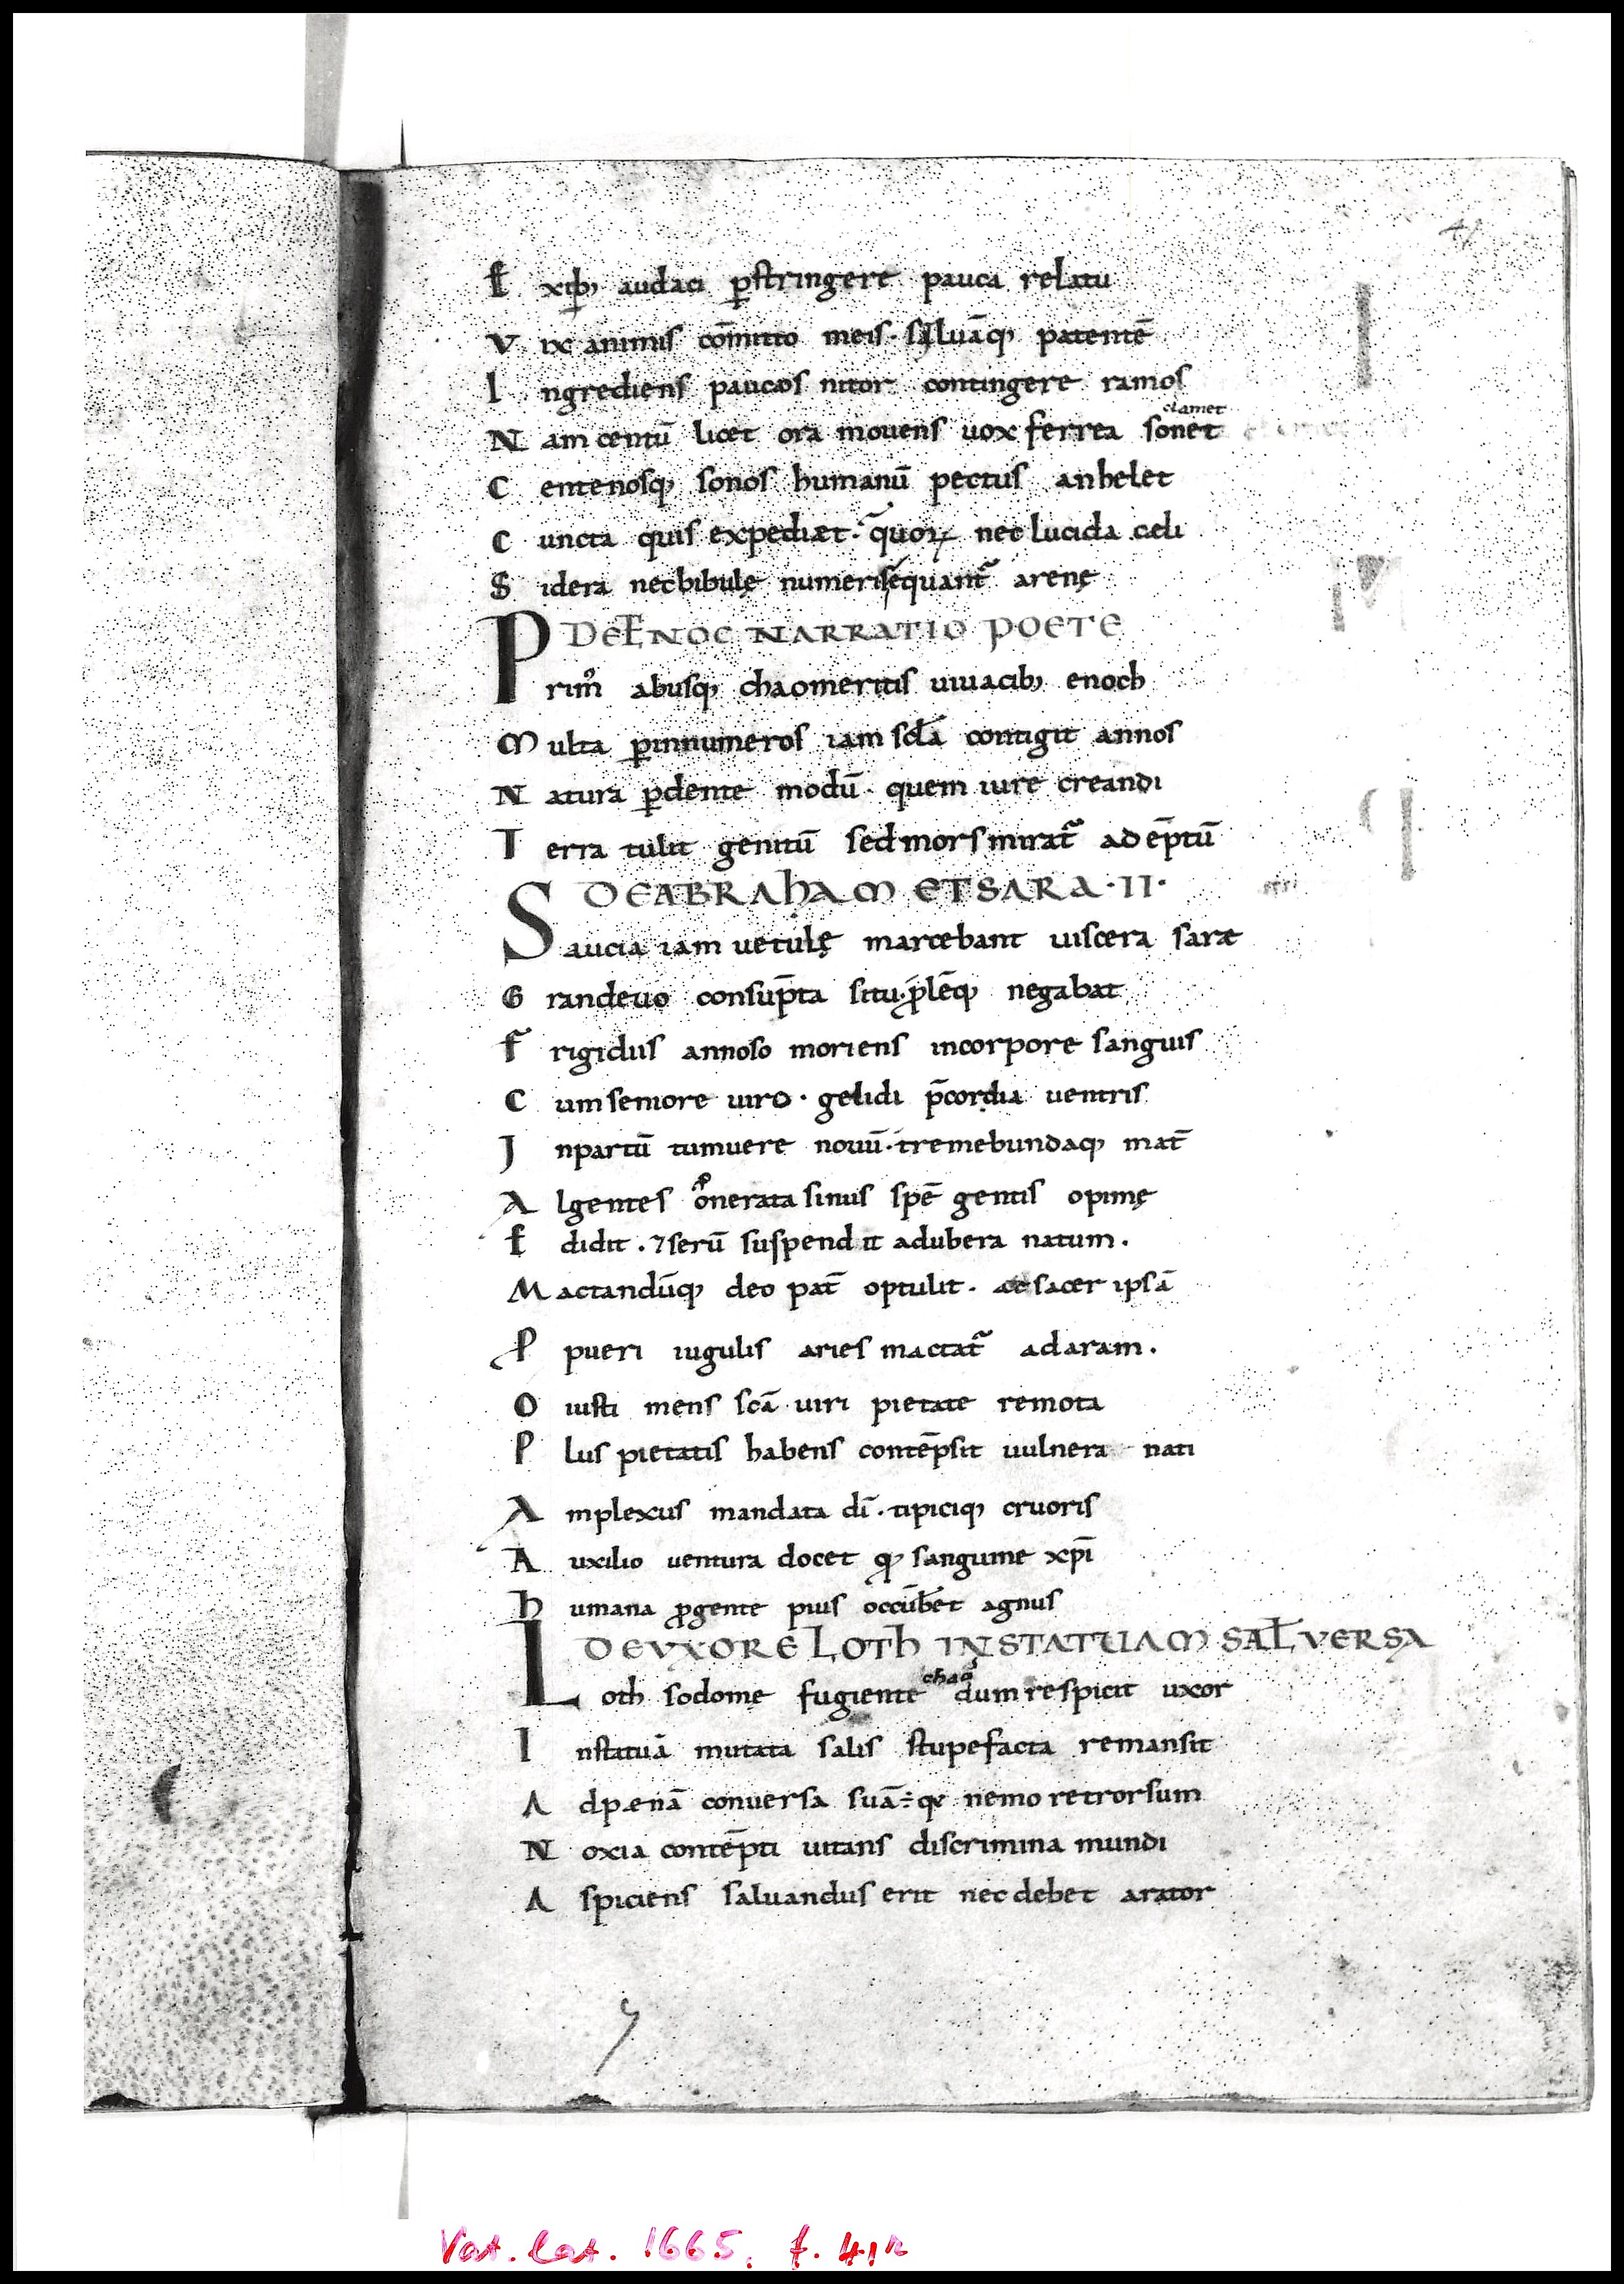 41
E xqb; audaci p̱stringere pauca relatu
V ix animis cōmitto meis · siluāq; patentē
I ngrediens paucos nitor contingere ramos
clamet
N am centū licet ora mouens uox ferrea sonet
C entenosq; sonos humanū pectus anhelet
C uncta quis expediæt · quoꝝ nec lucida cæli
S idera nec bibulę numeris equant᷑ arenę
DE ENOC NARRATIO POETE
P rim᷒ abusq; chao meritis uiuacib; enoch
M ulta ꝑ innumeros iam sc̄la contigit annos
N atura ꝑdente modū · quem iure creandi
T erra tulit genitū sed mors mirat᷑ adēptū
DE ABRAHAM ET SARA · II ·
S aucia iam uetulę marcebant uiscera saræ
G randeuo consūpta situ · ꝓlēq; negabat
F rigidus annoso moriens incorpore sanguis
C um seniore uiro · gelidi p̄cordia uentris
I npartū tumuere nouū · tremebundaq; mat̄
A lgentes onerata sinus spē gentis opimę
E didit · ⁊ serū suspendit adubera natum ·
M actandūq; deo pat̄ optulit · sacer ipsā
P pueri iugulis aries mactat᷑ adaram ·
O iusti mens sc̄a uiri pietate remota
P lus pietatis habens contēpsit uulnera nati
A mplexus mandata dī · tipiciq; cruoris
A uxilio uentura docet qđ sanguine xp̄i
H umana ꝓgente pius occūbet agnus
DE VXORE LOTH IN STATUAM SAL VERSA
chao᷒
L oth sodomę fugiente dum respicit uxor
I nstatuā mutata salis stupefacta remansit
A dpænā conuersa suā : q; nemo retrorsum
N oxia contēpti uitans discrimina mundi
A spiciens saluandus erit nec debet arator
Vat. lat. 1665, f. 41r